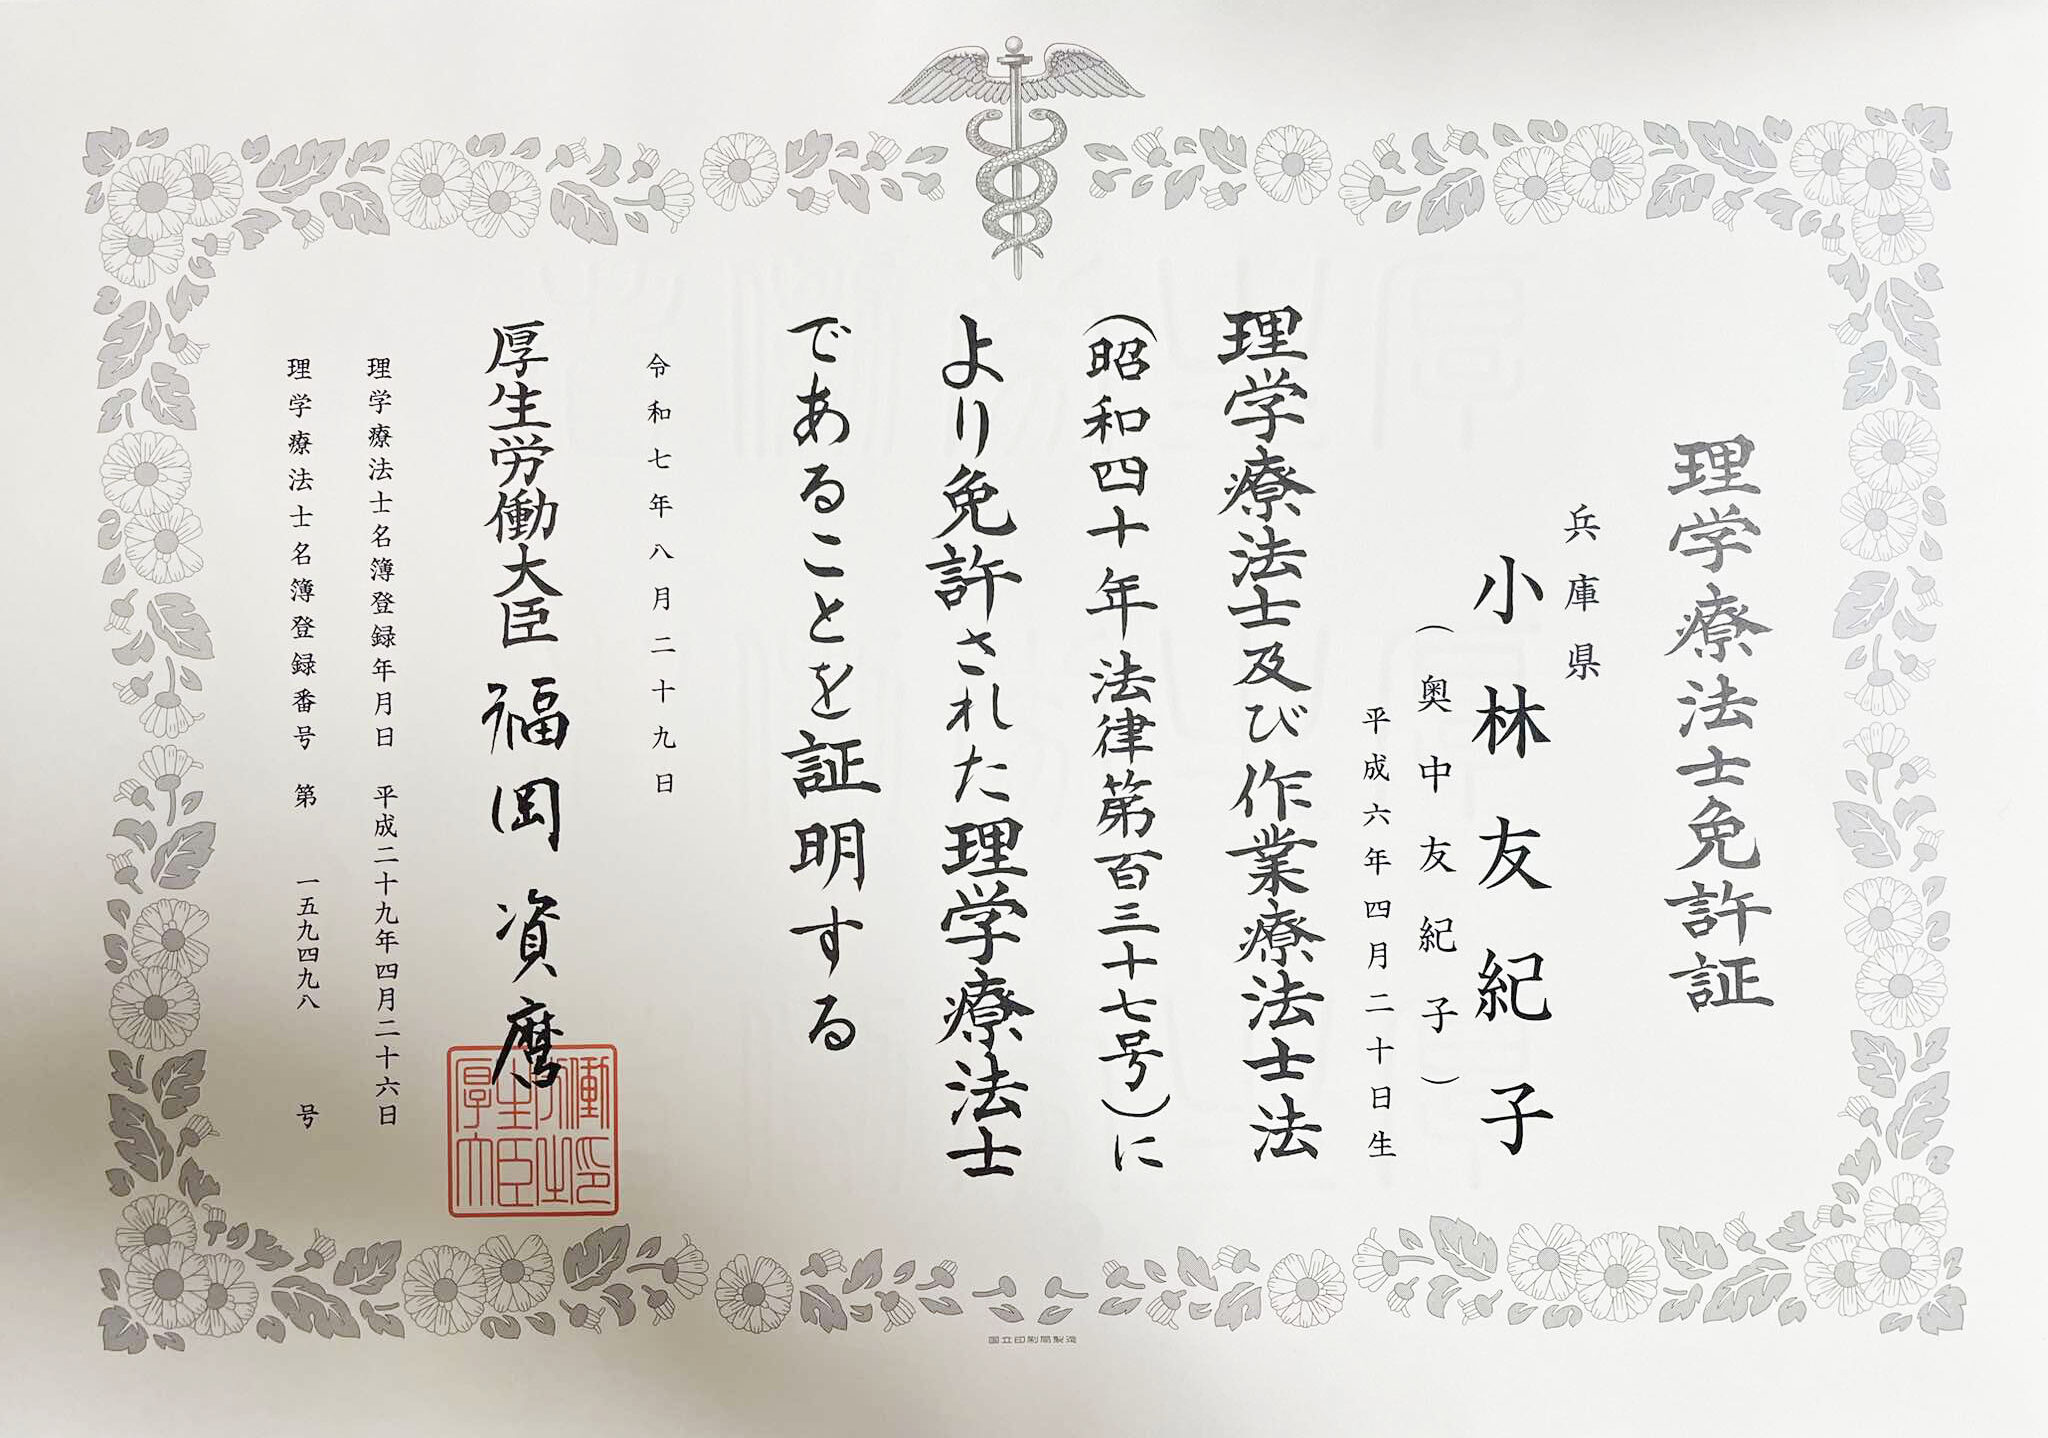 理学療法士免許証
兵庫県
小林友紀子
（奥中友紀子）
平成六年四月二十日生
理学療法士及び作業療法士法
（昭和四十年法律第百三十七号）に
より免許された理学療法士
であることを証明する
令和七年八月二十九日
厚生労働大臣 福岡資麿
理学療法士名簿登録年月日 平成二十九年四月二十六日
理学療法士名簿登録番号 第 一五九四九八 号
厚生労働大臣之印
国立印刷局製造